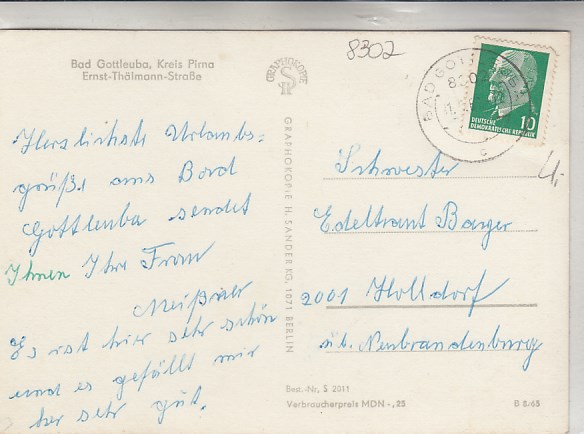 8302
Bad Gottleuba, Kreis Pirna
Ernst-Thälmann-Straße
GRAPHOKOPIE
BAD GOTT
DEUTSCHE
DEMOKRATISCHE REPUBLIK
10
c
Herzlichste Urlaubs=
grüße aus Bad
Gottleuba sendet
Ihnen Ihre Frau
Meißner
Es ist hier sehr schön
und es gefällt mir
hier sehr gut.
GRAPHOKOPIE H. SANDER KG, 1071 BERLIN
Schwester
Edeltraut Barger
2001 Holldorf
üb. Neubrandenburg
Best.-Nr. S 2011
Verbraucherpreis MDN -,25
B 8/65